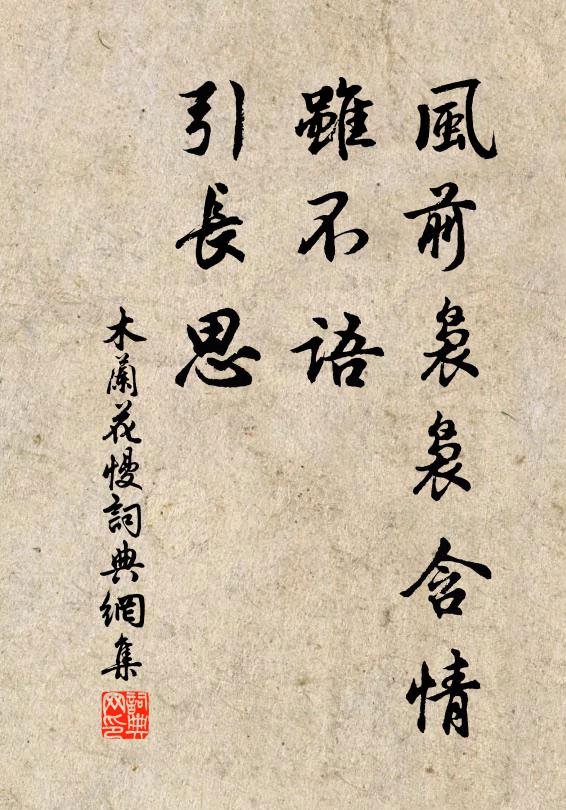 風前裊裊含情
雖不語
引長思
木蘭花慢詞典網集
詞典网印